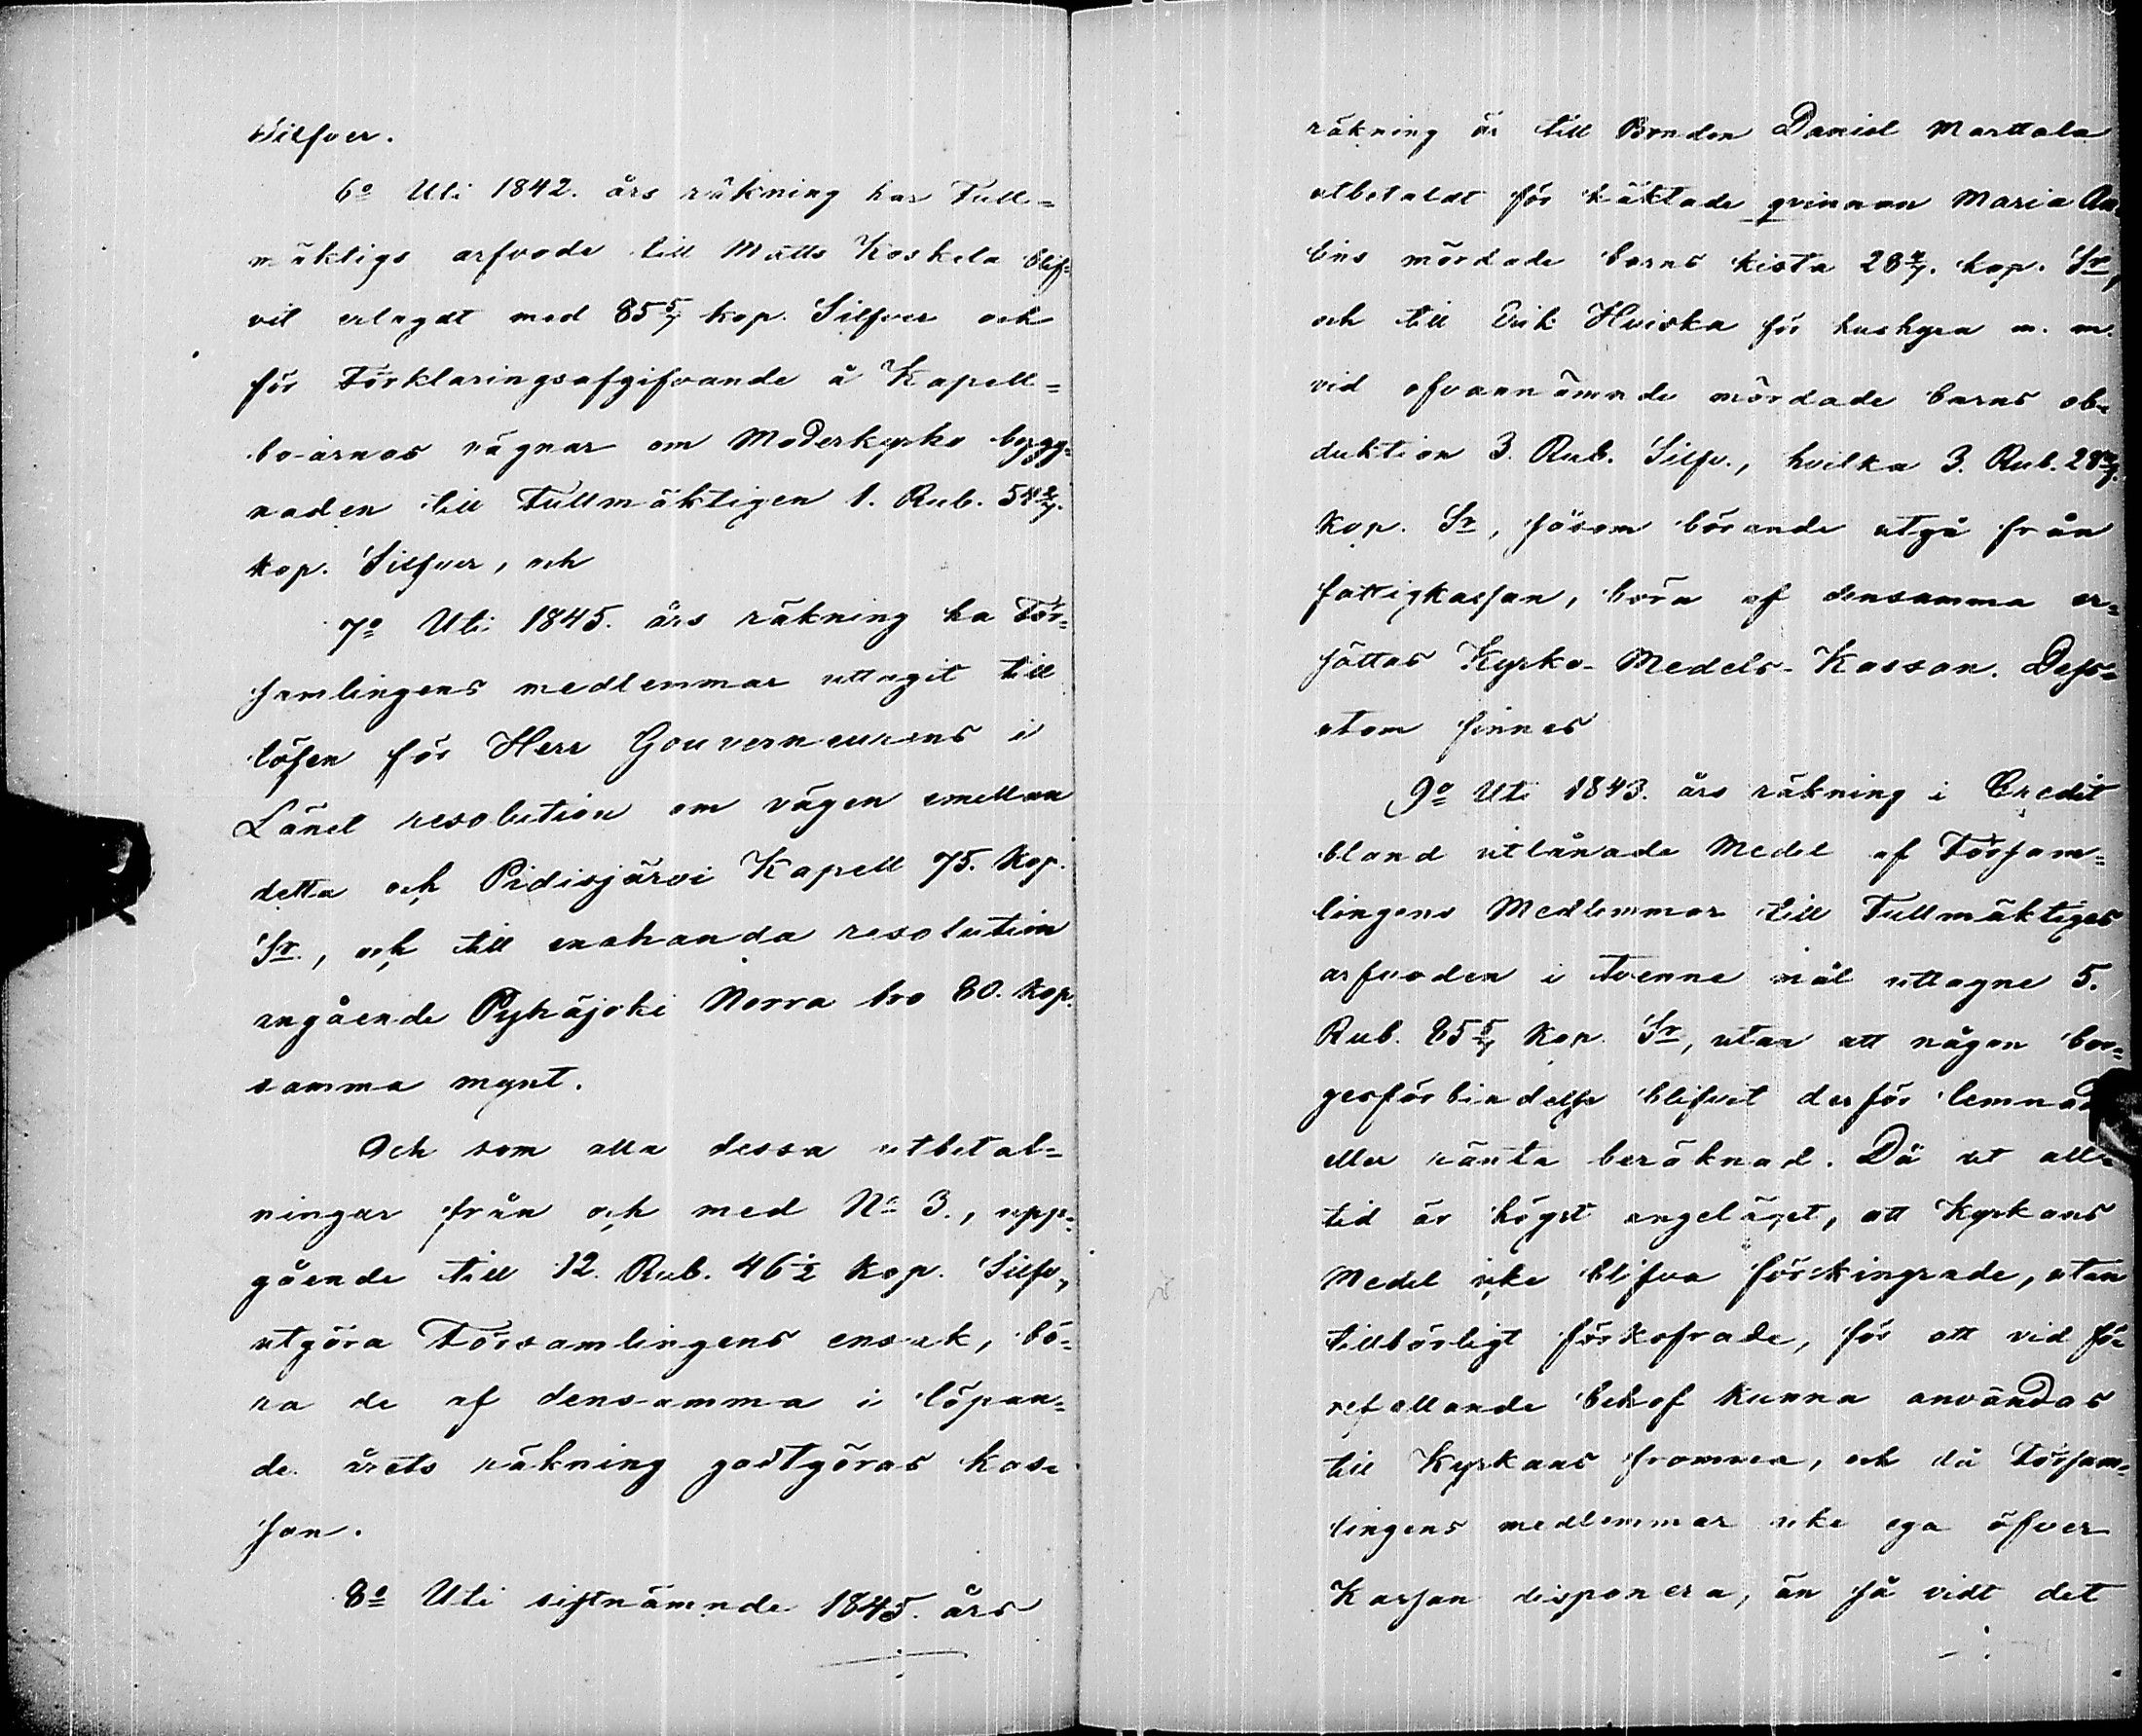 Silfver.
6º Uti 1842. års räkning har Full-
mäktigs arfvode till Matts Koskela blif-
vit erlagdt med 85 5/7 kop. Silfver och
för Förklaringsafgifvande å Kapell-
boärnas vägnar om Moderkyrko bygg-
naden till Fullmäktigen 1. Rub. 54 2/7.
kop. Silfver, och
7º Uti 1845. års räkning ha För-
samlingens medlemmar uttagit till
lösen för Herr Gouverneurens i
Länet resolution om vägen emellan
detta och Pidisjärvi Kapell 75. Kop.
Sr., och till enahanda resolution
angående Pyhäjoki Norra bro 80. kop.
samma mynt.
Och som alla dessa utbetal-
ningar från och med Nº 3., upp-
gående till 12. Rub. 46 1/2 kop. Silfv,
utgöra Församlingens ensak, bö-
ra de af densamma i löpan-
de årets räkning godtgöras kas-
san.
8º Uti sistnämnde 1845. års
räkning är till Bonden Daniel Marttala
utbetaldt för häktade qvinnan Maria
bins mördade barns kista 28 4/7. kop. Sr,
och till Erik Huiska för hushyra m. m.
vid ofvannämnde mördade barns ob-
duktion 3. Rub. Silfv., hvilka 3. Rub. 28 4/7.
kop. Sr, såsom börande utgå från
fattigkassan, böra af densamma er-
sättas Kyrko-Medels-Kassan. Dess-
utom finnes
9º Uti 1843. års räkning i Credit
bland utlånade Medel af Församlingens
lingens Medlemmar till Fullmäktiges
arfvoden i tvenne mål uttagne 5.
Rub. 85 5/7 Kop. Sr, utan att någon bor-
gesförbindelse blifvit derför lemnad
eller ränta beräknad. Då det all-
tid är högst angeläget, att Kyrkans
Medel icke blifva förskingrade, utan
tillbörligt förkofrade, för att vid fö-
refallande behof kunna användas
till Kyrkans fromma, och då Försam-
lingens medlemmar icke ega öfver
Kassan disponera, än så vidt det